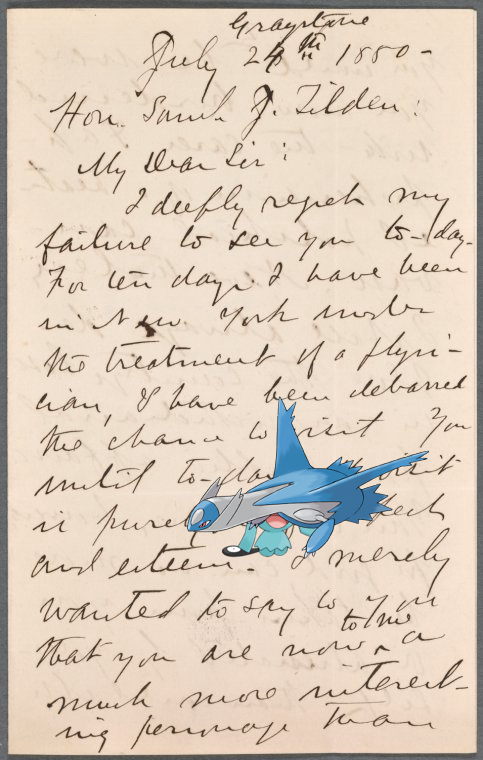 Graystone
July 28th 1880-
Hon. Saml. J. Tilden:
My Dear Sir:
I deeply regret my
failure to see you to-day.
For ten days I have been
in New York under
the treatment of a physi-
cian, & have been debarred
the chance to visit You
until to-day visit
is purely
and esteem. I merely
wanted to say to you
that you are now to me a
much more interest-
ing personage than